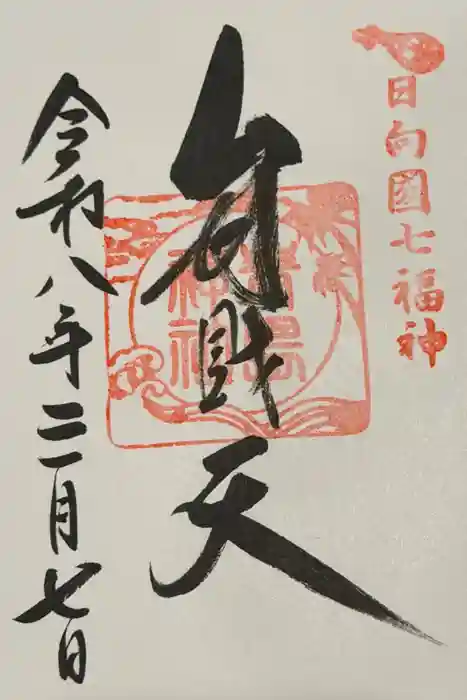 日向國七福神
弁財天
青島
神社
令和八年三月七日